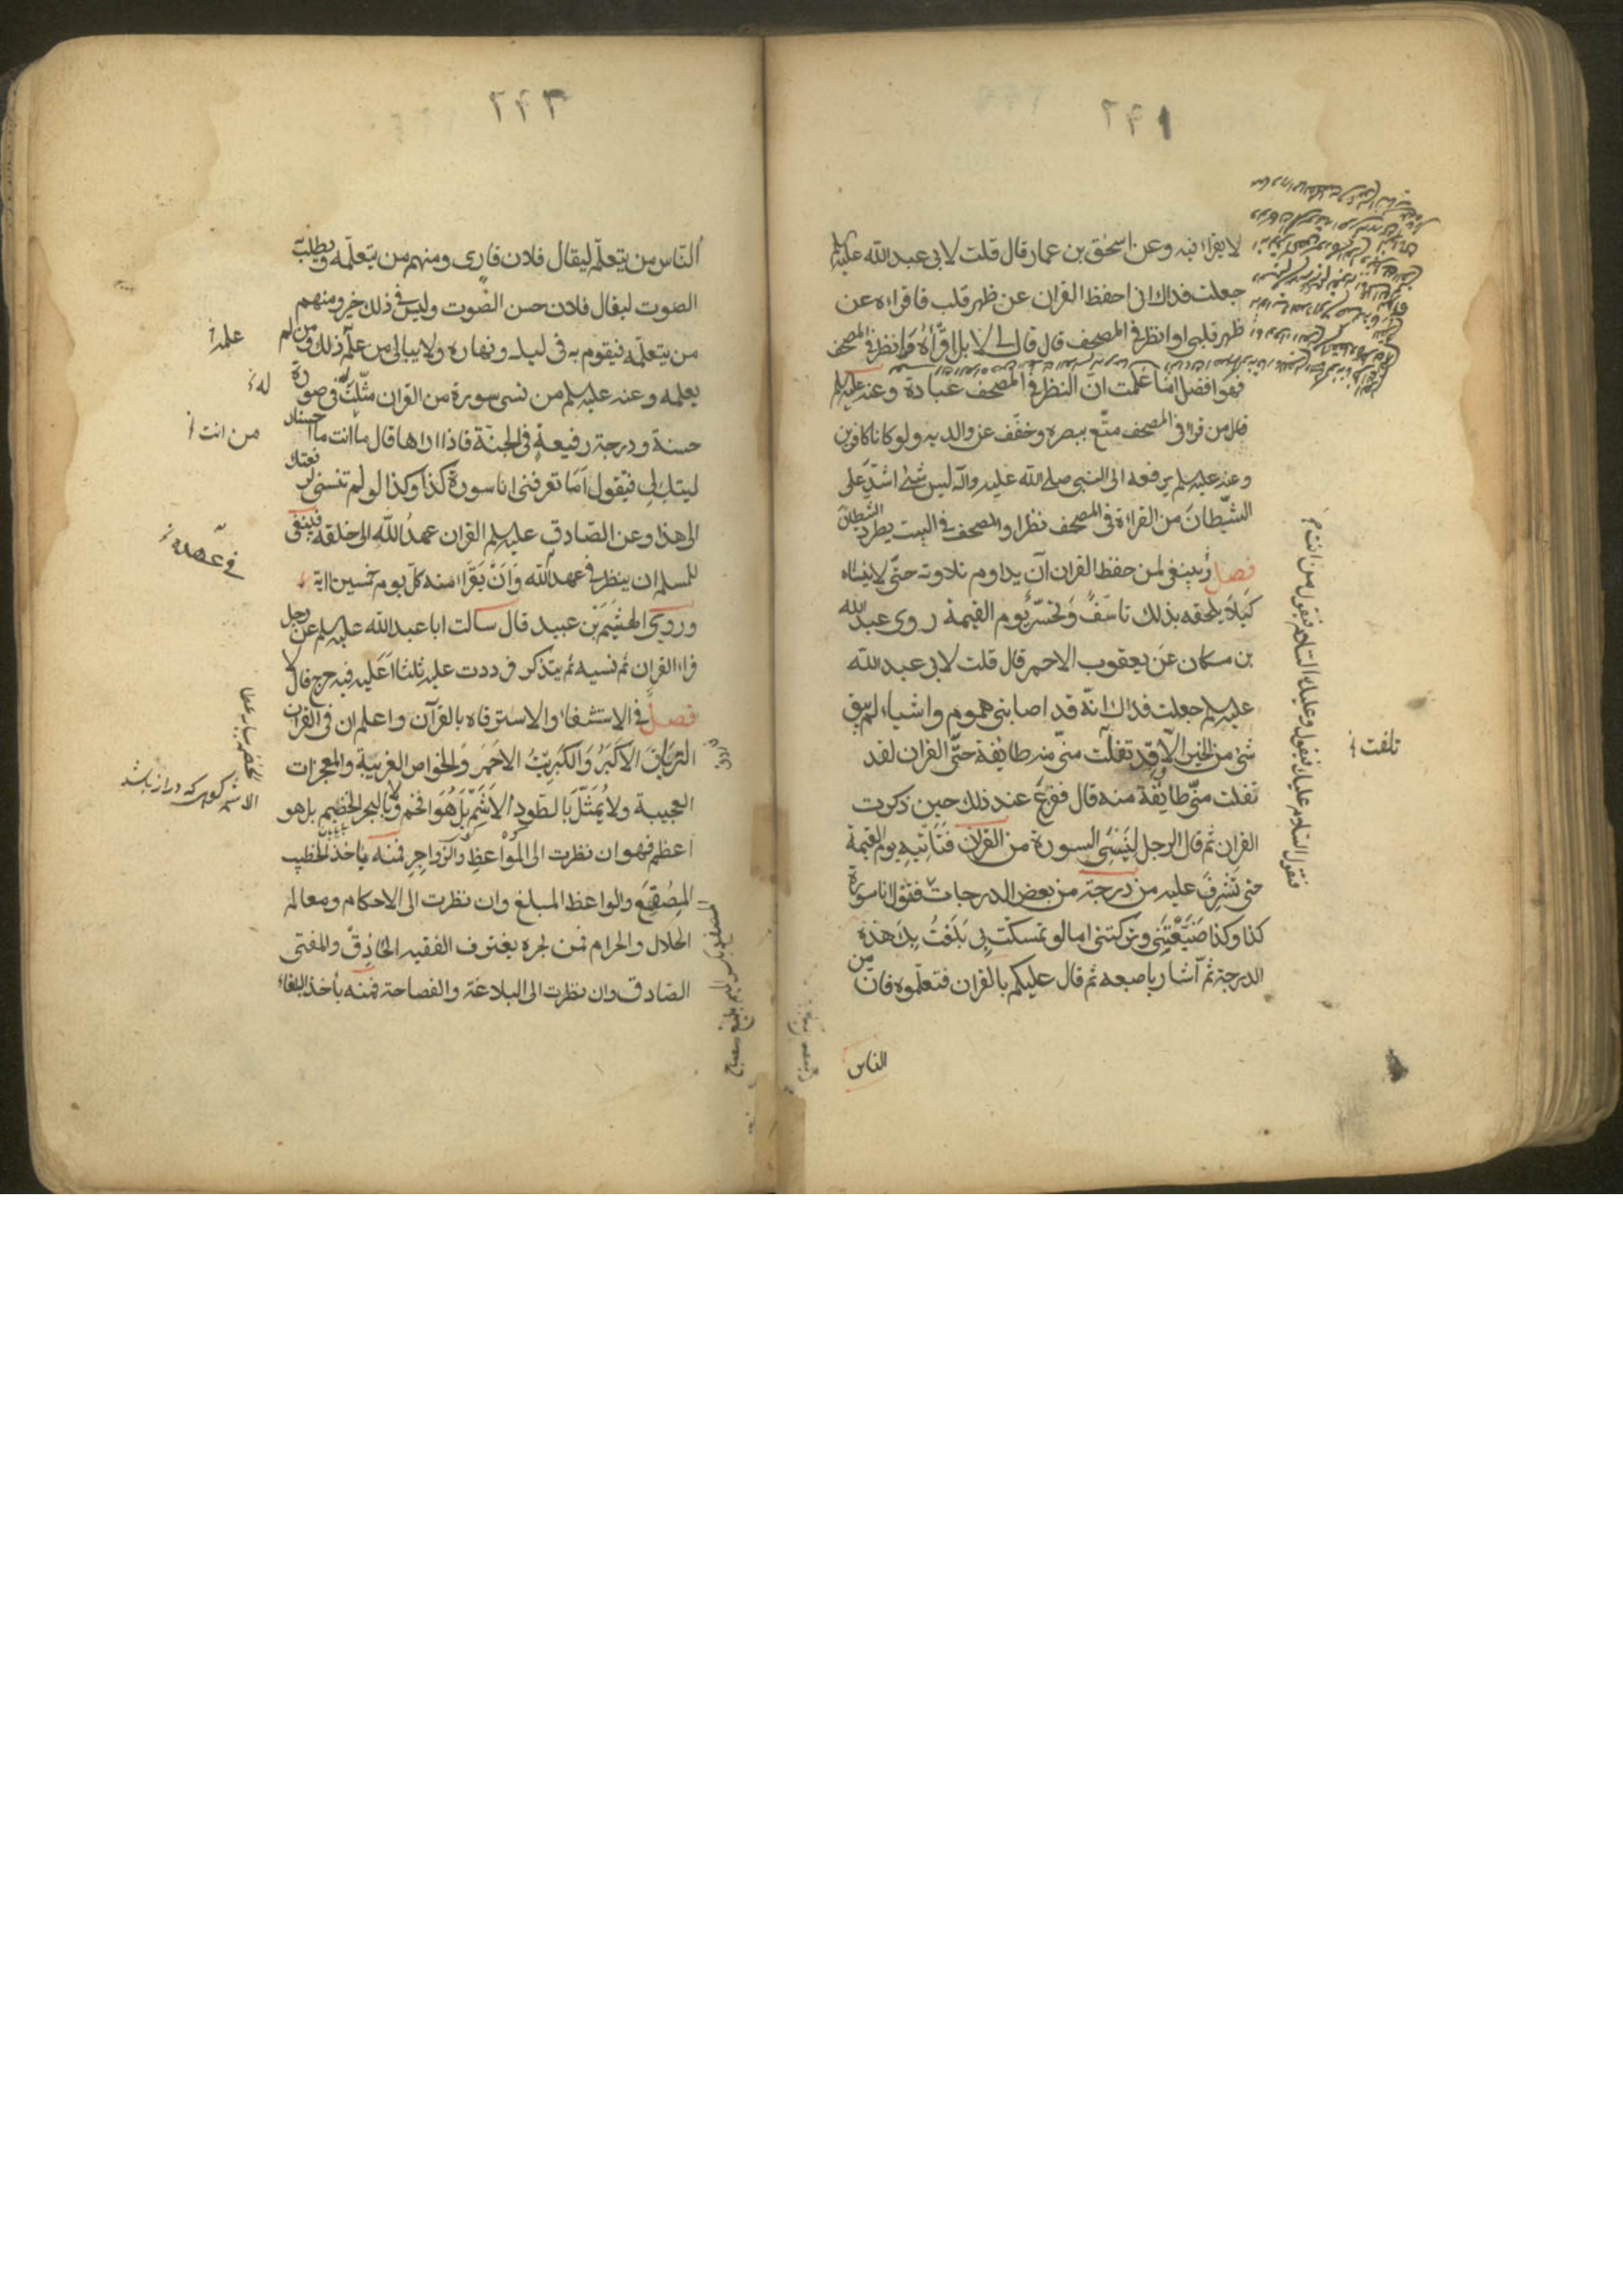 ٢٦١
لا يقراء فيه وعن اسحق بن عمار قال قلت لابي عبد الله عليه
جعلت فداك انى احفظ القران عن ظهر قلب فاقراءه عن
ظهر قلبى او انظر فى المصحف قال قال لى لا بل اقرأه وانظر فى المصحف
فهو افضل اما علمت انّ النظر فى المصحف عبادة وعنه عليه سلم
قال من قراء فى المصحف متّع ببصره وخفّف عن والديه ولو كانا كافرين
وعنه عليه سلم يرفعه الى النبى صلى الله عليه وآله ليس شئ اشدّ على
الشّيطان من القراءة فى المصحف نظرا والمصحف فى البيت يطرد الشّيطان
فصل وينبغى لمن حفظ القران ان يداوم تلاوته حتّى لا ينساه
كيلا يلحقه بذلك تاسّف وتحسّر يوم القيمة روى عبد الله
بن مسكان عن يعقوب الاحمر قال قلت لابى عبد الله
عليه سلم جعلت فداك انّه قد اصابنى هموم واشياء لم يبق
شئ من الخير الّا وقد تفلّت منّى منه طايفة حتّى القران لقد
تفلت منّى طايفة منه قال ففزع عند ذلك حين ذكرت
القران ثم قال الرجل لينسى السورة من القران فتاتيه يوم القيمة
حتى تشرف عليه من درجة من بعض الدرجات فتقول انا سورة
كذا وكذا ضيّعتنى وتركتنى اما لو تمسكت بى بلغت بك هذه
الدرجة ثم اشار باصبعه ثم قال عليكم بالقران فتعلّموه فان من
الناس
تلفت
فتقول السّلام عليك فيقول وعليك السّلام فيقول من انت
٢٦٢
النّاس من يتعلّم ليقال فلان قارى ومنهم من يتعلّمه ويطلب به
الصوت ليقال فلان حسن الصّوت وليس فى ذلك خير ومنهم
من يتعلّمه فيقوم به فى ليله ونهاره ولا يبالى من علم ذلك ومن لم
يعلمه وعنه عليه سلم من نسى سورة من القران مثّلت له فى صورة
حسنة ودرجة رفيعة فى الجنّة فاذا راها قال ما انت ما احسنك
ليتك لى فيقول اما تعرفنى انا سورة كذا وكذا لو لم تنسنى لرفعتك
الى هذا وعن الصّادق عليه سلم القران عهد الله الى خلقه فينبغى
للمسلم ان ينظر فى عهد الله وان يقراء منه كل يوم خمسين اية
وروى الهيثم بن عبيد قال سالت ابا عبد الله عليه سلم عن رجل
قراء القران ثم نسيه ثم يتذكر فرددت عليه ثلثا اعليه فيه حرج قال لا
فصل فى الاستشفاء والاسترقاه بالقرآن واعلم ان فى القران
الترياق الاكبر والكبريت الاحمر والخواص الغريبة والمعجزات
العجيبة ولا يمثّل بالطّود الاشمّ بل هو افخم ولا بالبحر الخضيم بل هو
اعظم فهو ان نظرت الى المواعظ والزّواجر فمنه ياخذ الخطيب
المصقع والواعظ المبلغ وان نظرت الى الاحكام ومعالم
الحلال والحرام فمن بحره يغترف الفقيه الحاذق والمفتى
الصّادق وان نظرت الى البلاغة والفصاحة فمنه يأخذ البلغاء
علمه
له
من انت
فى عهده
الاشم كوهى كه دراز باشد